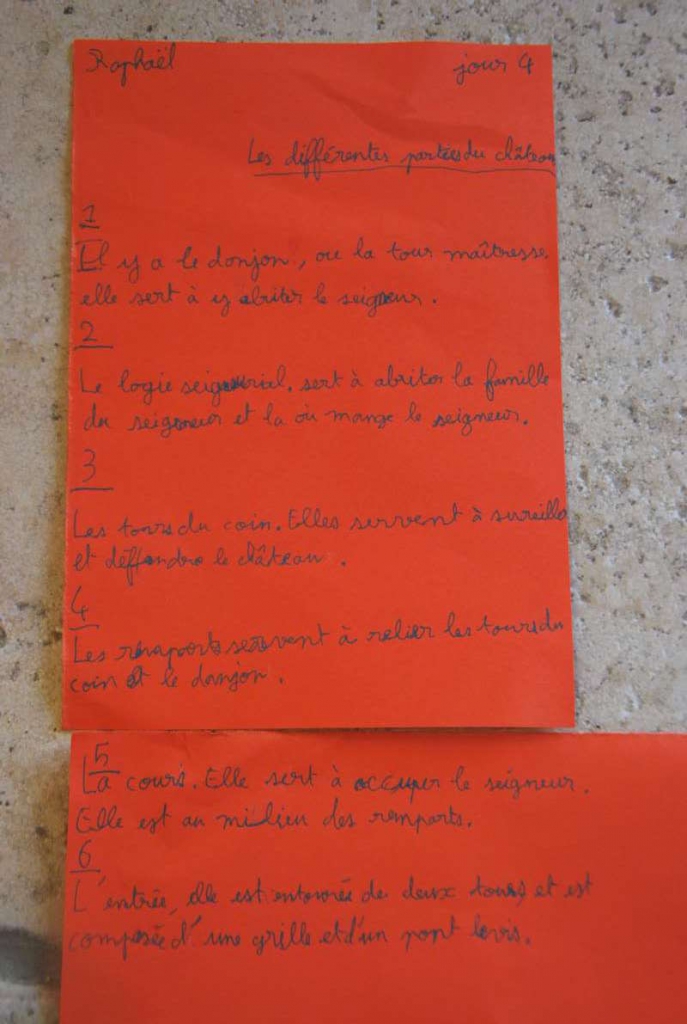 Raphaël jour 4
Les différentes parties du château
1
Il y a le donjon, ou la tour maîtresse
elle sert à y abriter le seigneur.
2
Le logie seigneurial. sert à abriter la famille
du seigneur et la où mange le seigneur.
3
Les tours du coin. Elles servent à surveiller
et déffendre le château.
4
Les remaports servent à relier les tours du
coin et le danjon.
5
La cours. Elle sert à occuper le seigneur.
Elle est au milieu des remparts.
6
L'entrée, elle est entourée de deux tours, et est
composée d'une grille et d'un pont levis.